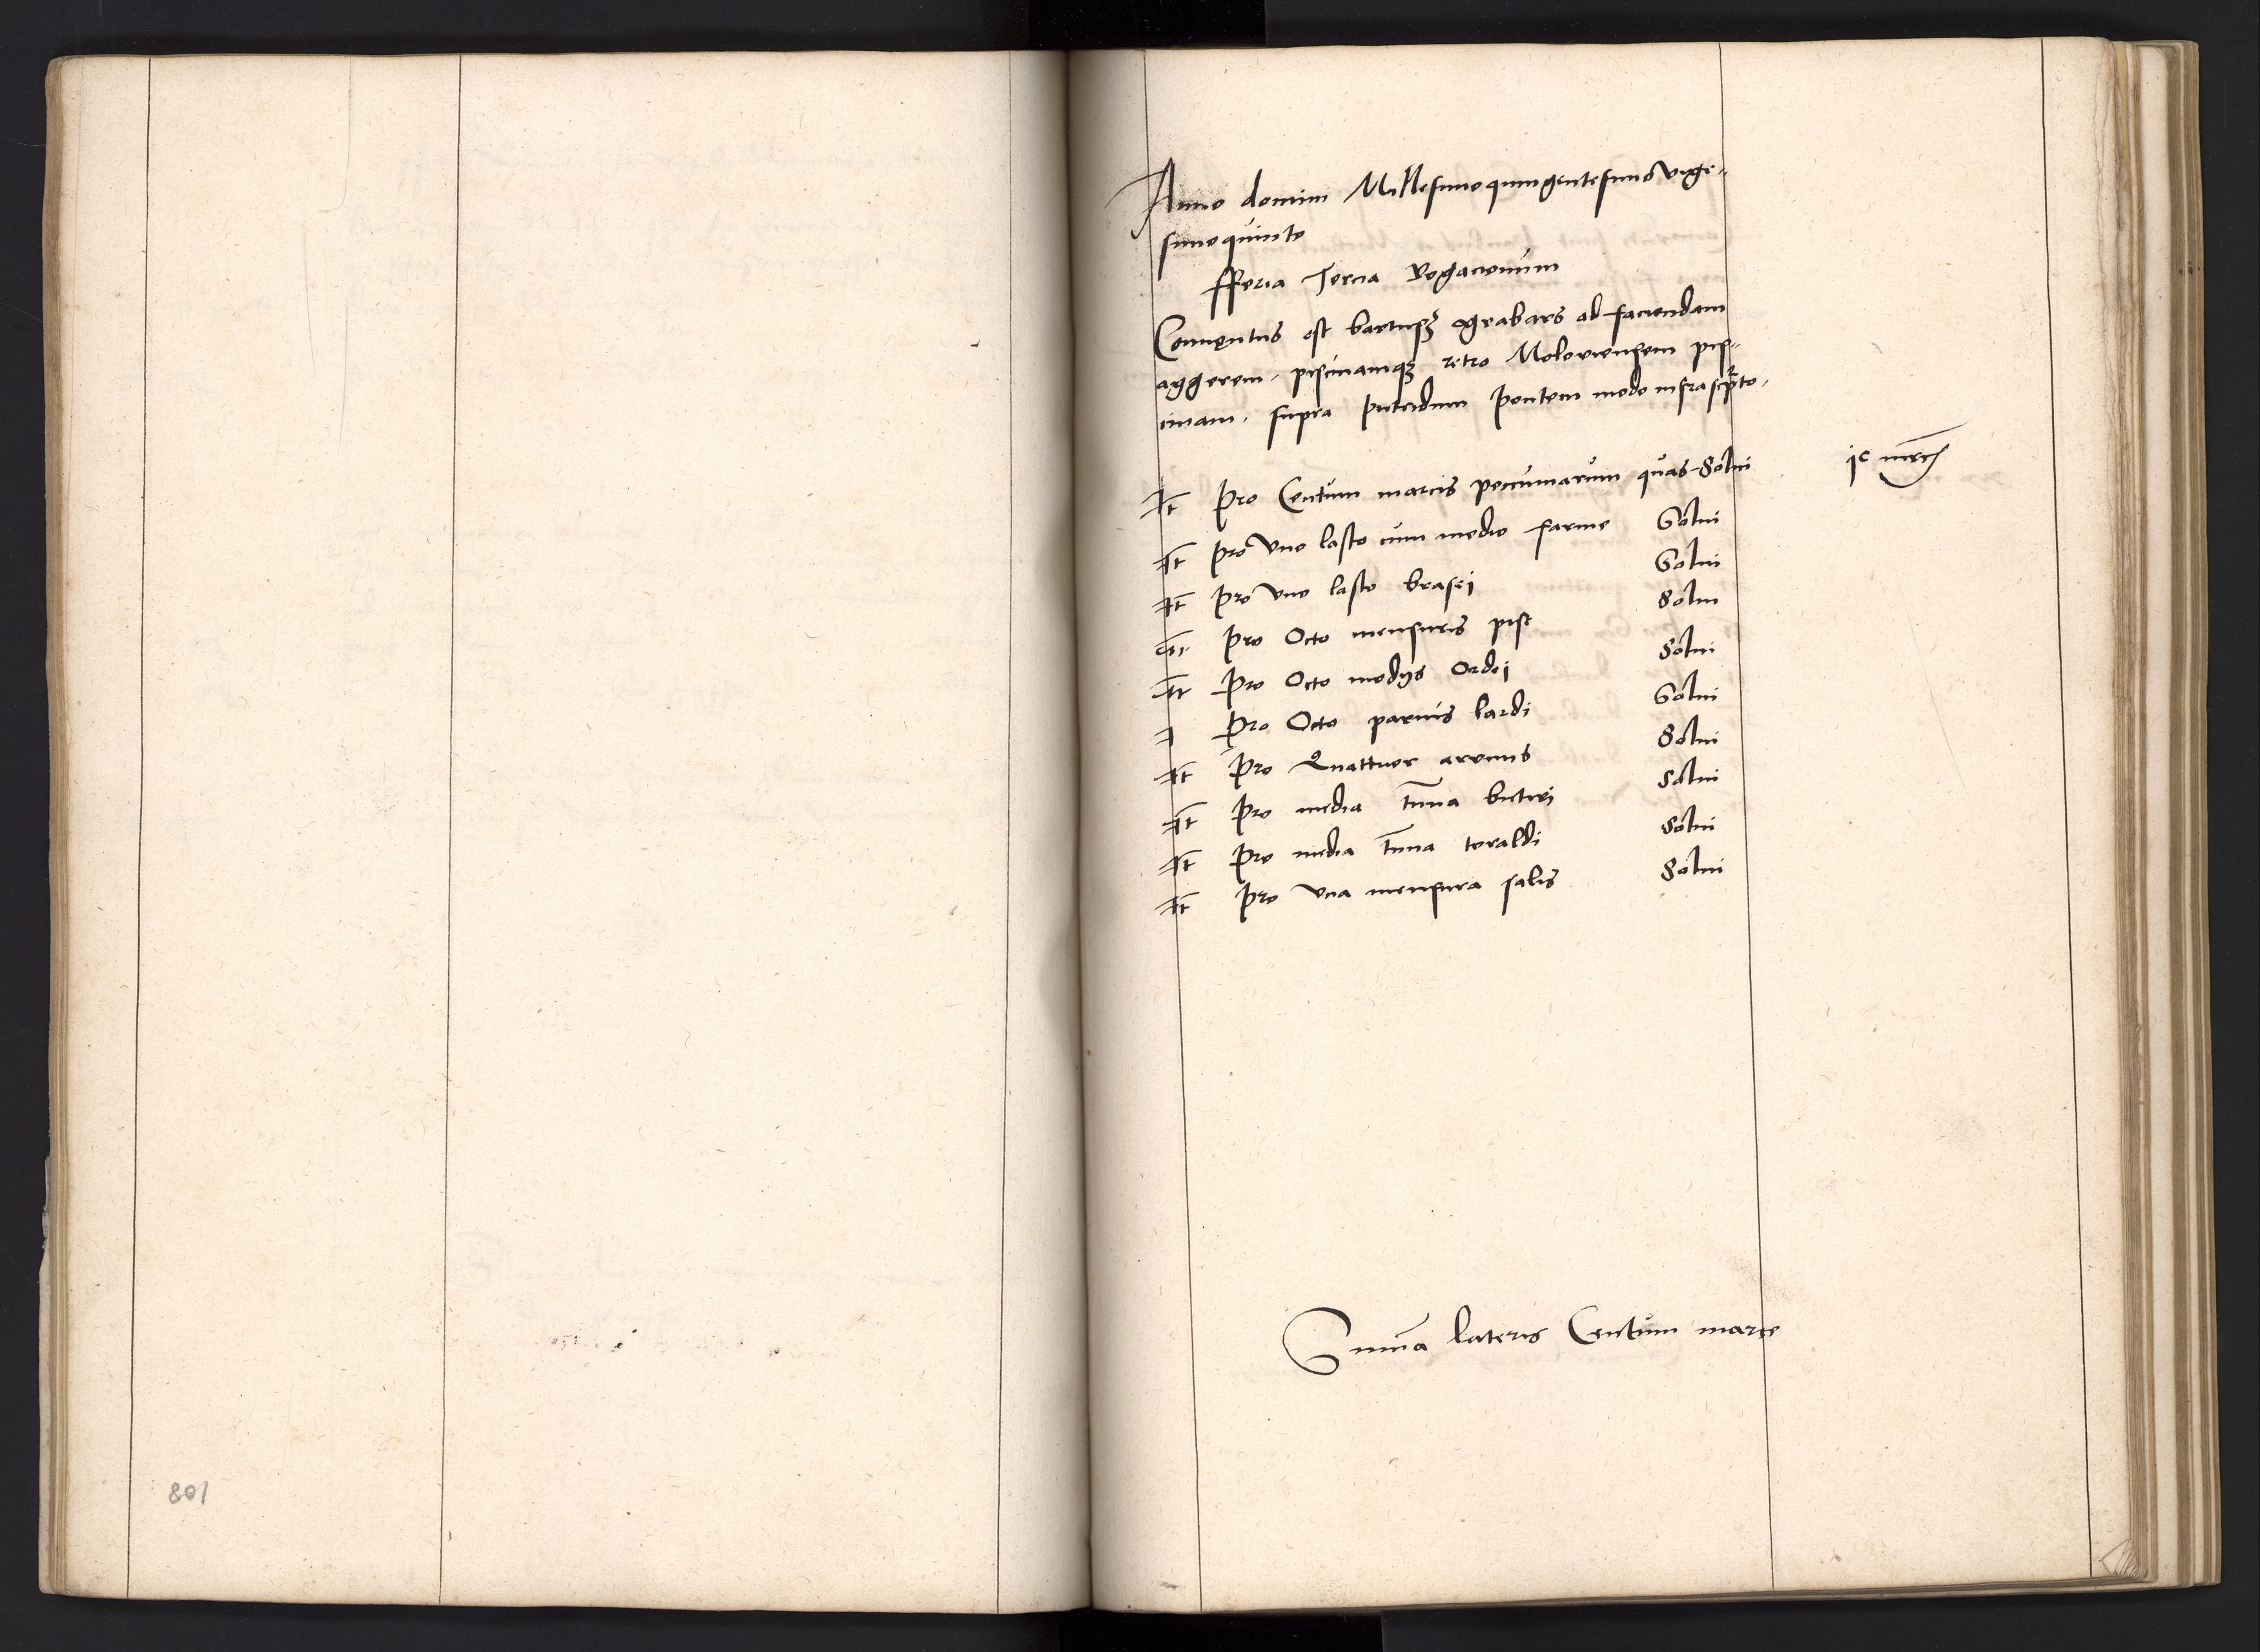 801
Anno domini Millesimoquingentesimovige-
simoquinto
fferia Tercia Rogacionum
Conuentus est bartusz grabars ad faciendam
aggerem, piscinamqȝ retro Moloviensem pis-
cinam, supra putridum pontem modo infrascripto.
It Pro Centum marcis pecuniarum quas Solui jᶜ mrc
It Pro vno lasto cum medio farine Solui
It Pro vno lasto brasej Solui
Pro Octo mensuris pise Solui
It Pro Octo modijs Ordej Solui
I Pro Octo parnis lardi Solui
It Pro Quattuor aruinis Solui
It Pro media tunna butiri Solui
It Pro media tunna toraldi Solui
It Pro vna mensura salis Solui
Summa lateris Centum marce